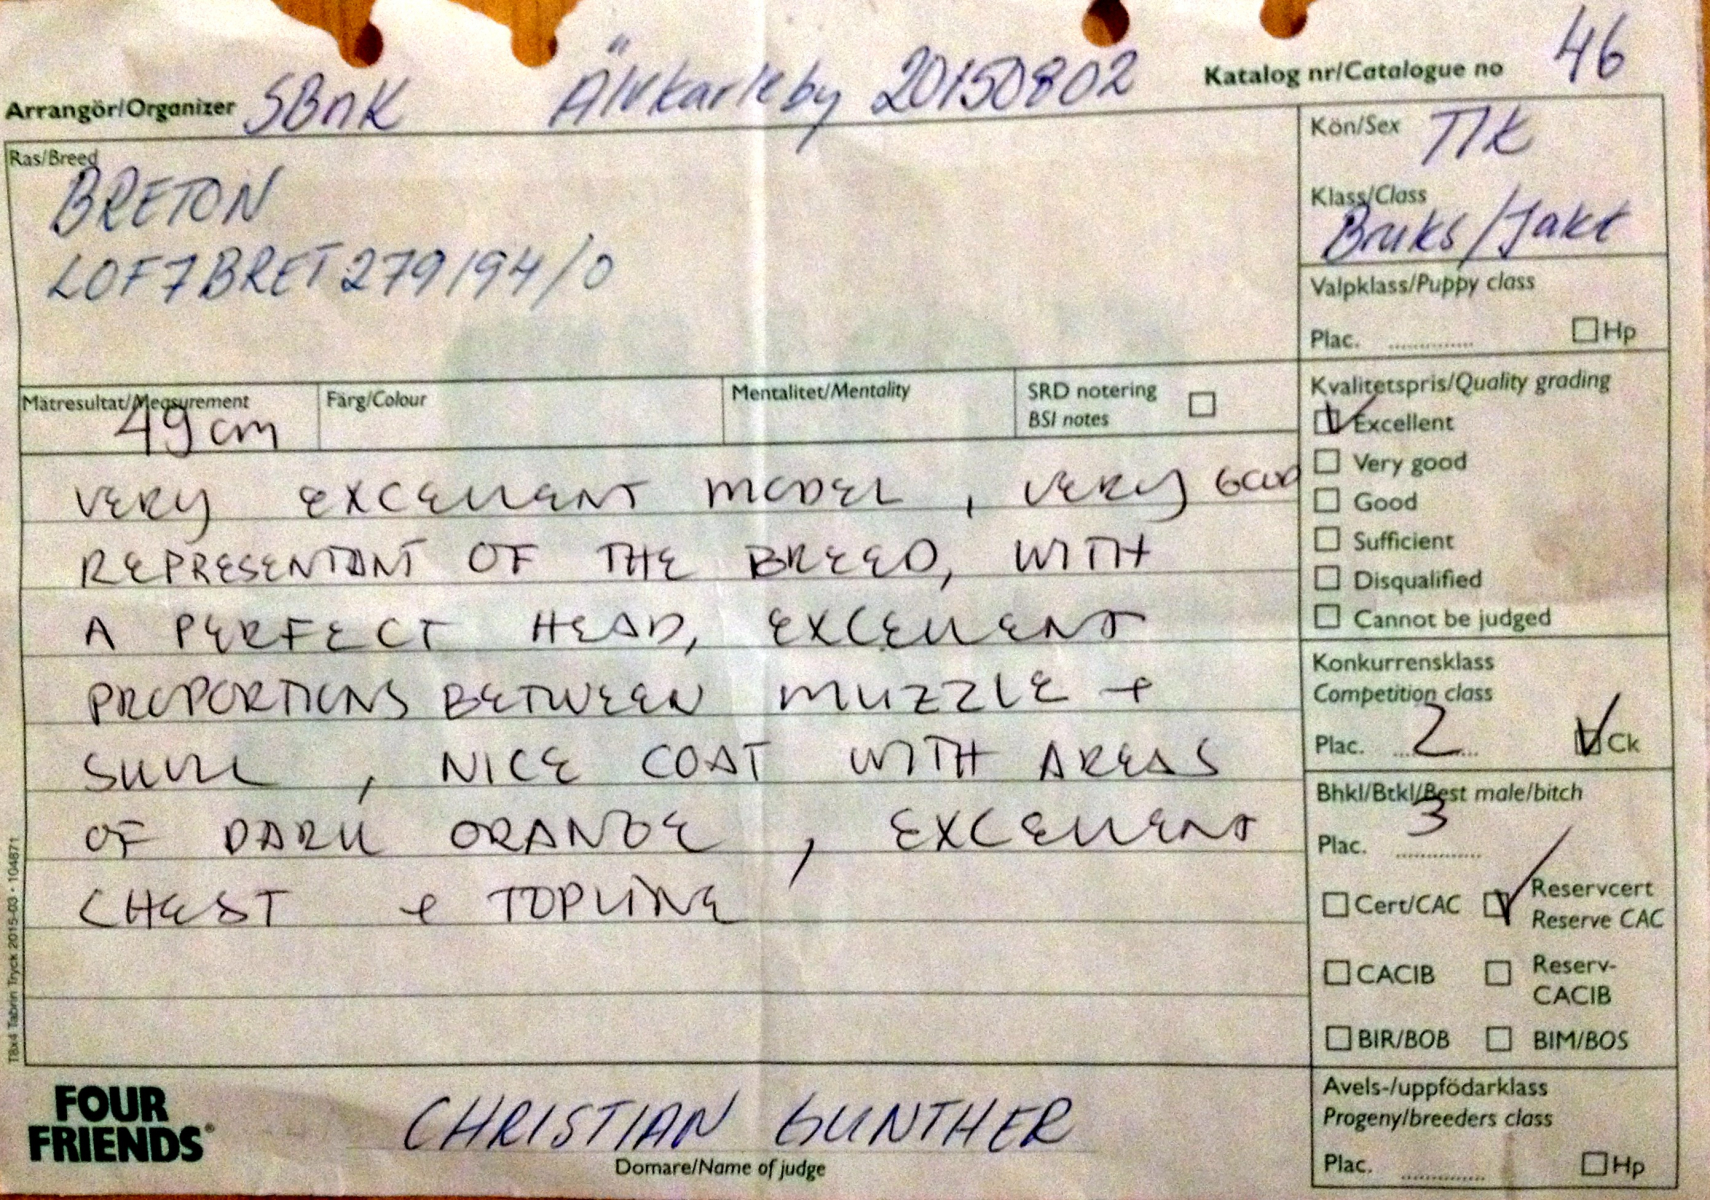 Arrangör/Organizer SBnK Älvkarleby 20150802 Katalog nr/Catalogue no 46
Ras/Breed
BRETON
LOF7BRET279194/0
Kön/Sex TIK
Klass/Class
Bruks/Jakt
Valpklass/Puppy class
Plac. .............. Hp
Mätresultat/Measurement
49cm
Färg/Colour
Mentalitet/Mentality
SRD notering
BSI notes
Kvalitetspris/Quality grading
Excellent
Very good
Good
Sufficient
Disqualified
Cannot be judged
VERY EXCELLENT MODEL, VERY GOOD
REPRESENTANT OF THE BREED, WITH
A PERFECT HEAD, EXCELLENT
PROPORTIONS BETWEEN MUZZLE +
SKULL, NICE COAT WITH AREAS
OF DARK ORANGE, EXCELLENT
CHEST + TOPLINE
Konkurrensklass
Competition class
Plac. 2 Ck
Bhkl/Btkl/Best male/bitch
Plac. 3
Cert/CAC
Reservcert
Reserve CAC
CACIB
Reserv-
CACIB
BIR/BOB
BIM/BOS
Avels-/uppfödarklass
Progeny/breeders class
Plac. .............. Hp
T8x4 Tabrin Tryck 2015-03 • 104871
FOUR
FRIENDS®
CHRISTIAN GUNTHER
Domare/Name of judge